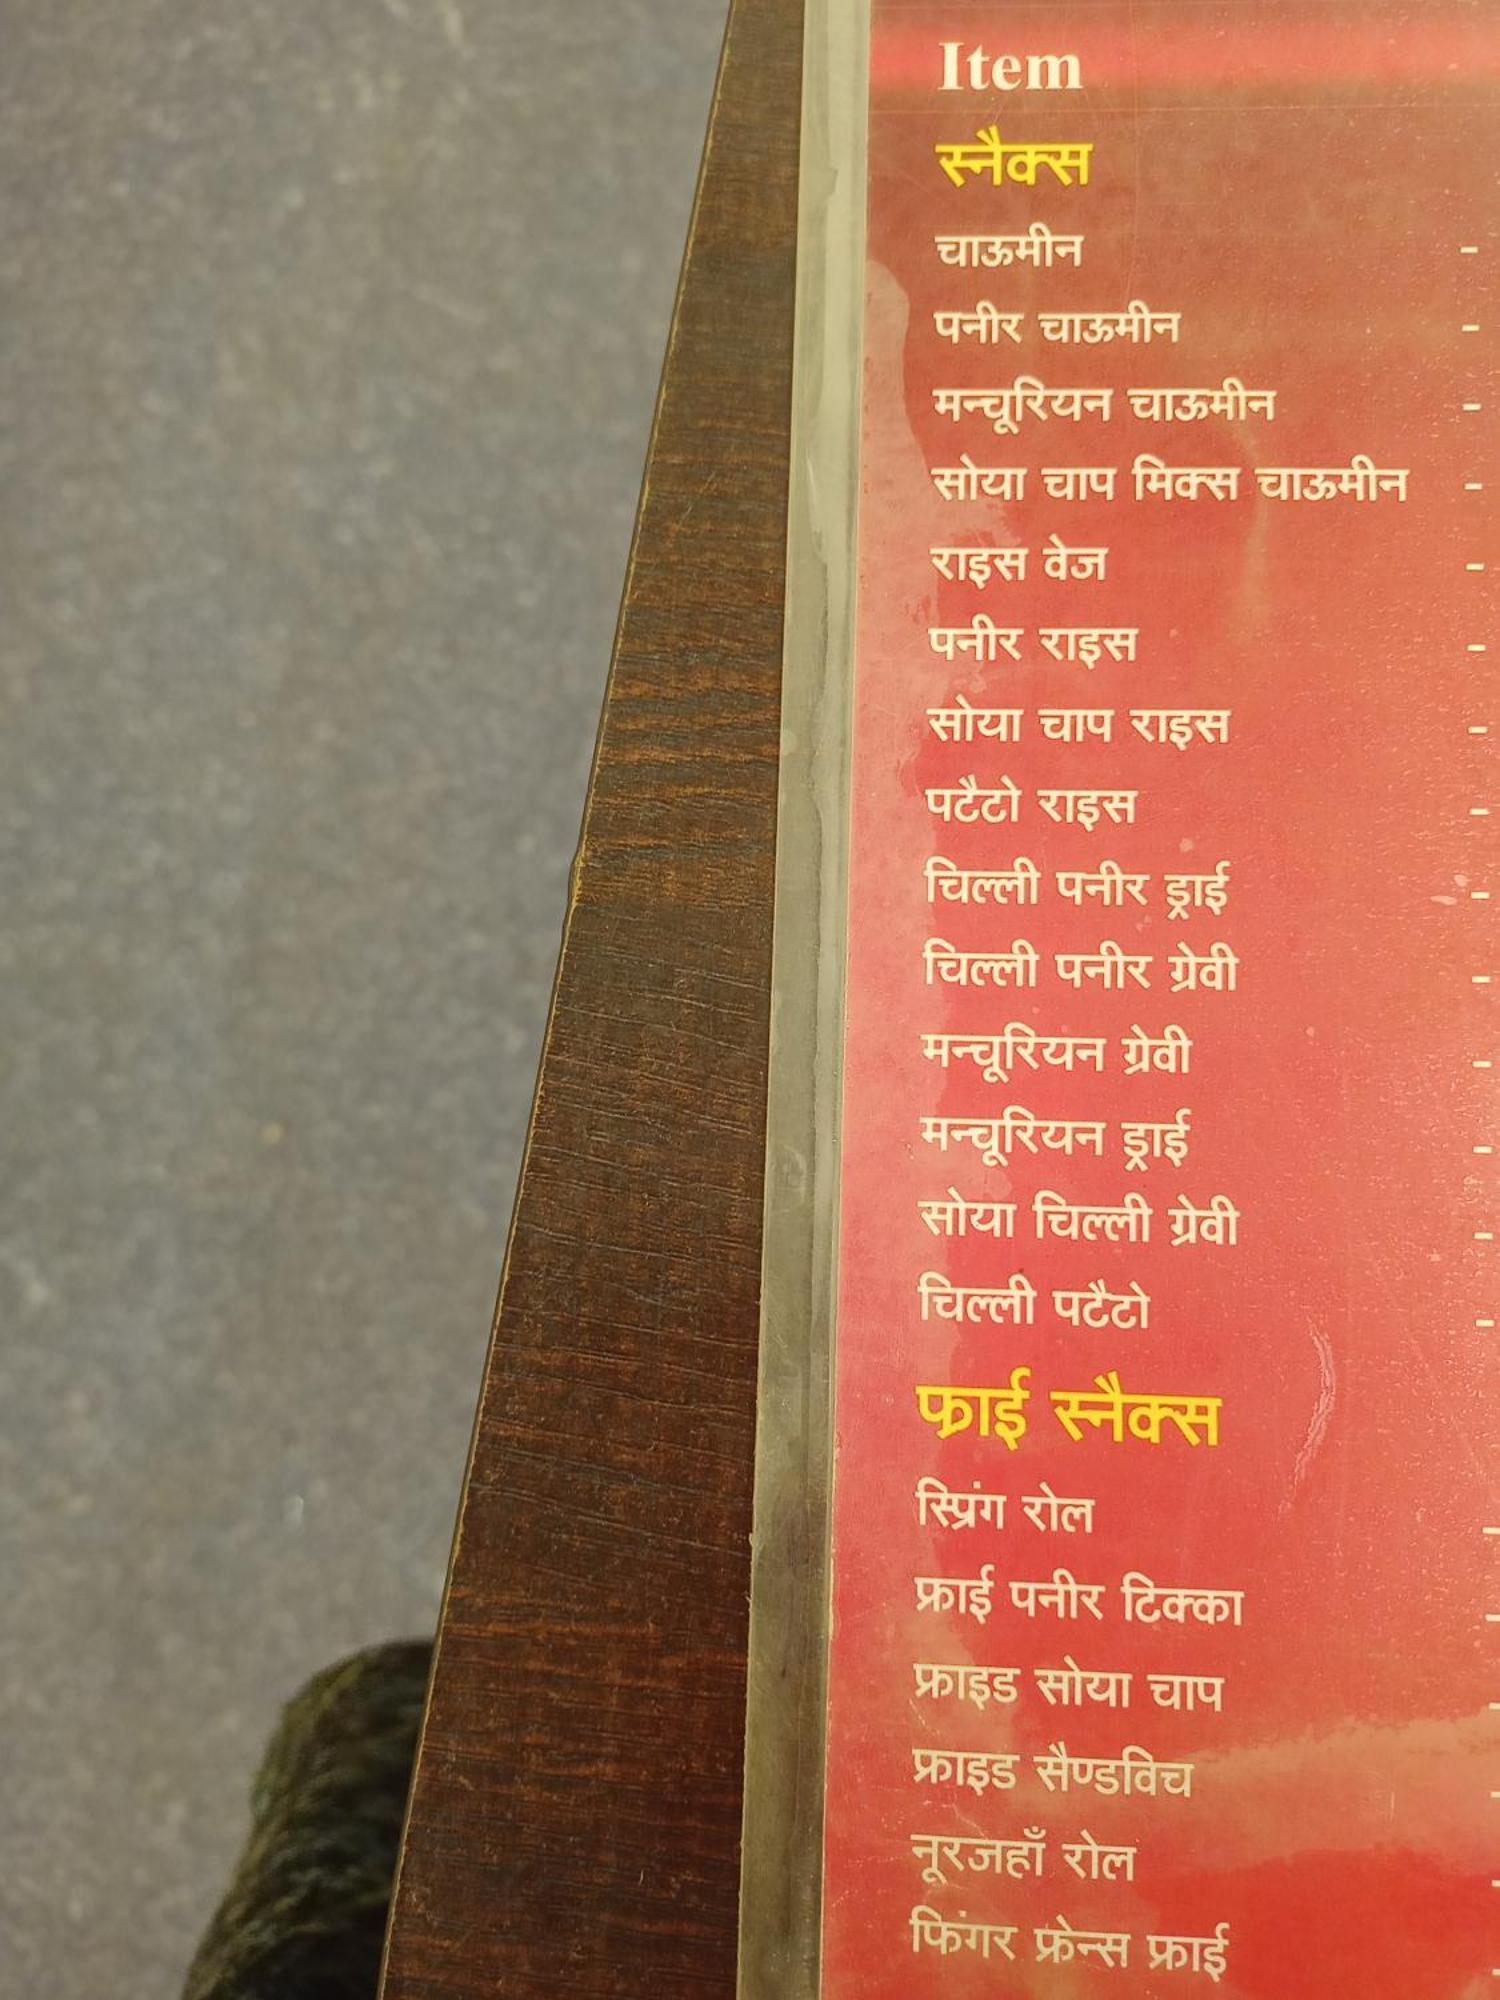 Item
स्नैक्स
चाऊमीन -
पनीर चाऊमीन -
मन्चूरियन चाऊमीन -
सोया चाप मिक्स चाऊमीन -
राइस वेज -
पनीर राइस -
सोया चाप राइस -
पटैटो राइस -
चिल्ली पनीर ड्राई -
चिल्ली पनीर ग्रेवी -
मन्चूरियन ग्रेवी -
मन्चूरियन ड्राई -
सोया चिल्ली ग्रेवी -
चिल्ली पटैटो -
फ्राई स्नैक्स
स्प्रिंग रोल -
फ्राई पनीर टिक्का -
फ्राइड सोया चाप -
फ्राइड सैण्डविच -
नूरजहाँ रोल -
फिंगर फ्रेन्स फ्राई -